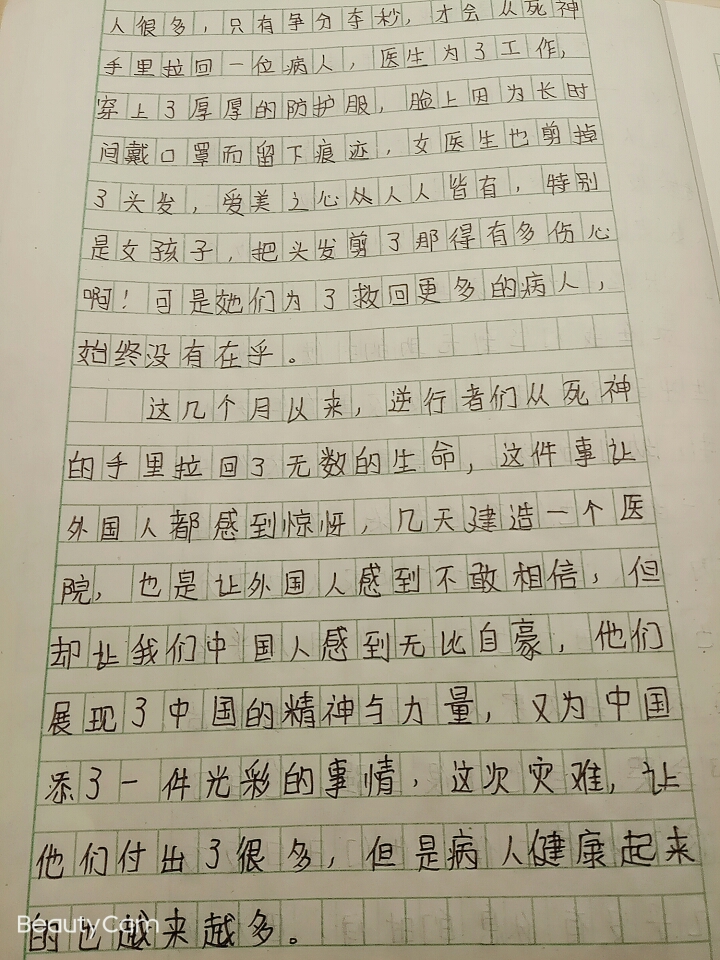 人很多，只有争分夺秒，才会从死神
手里拉回一位病人，医生为了工作，
穿上了厚厚的防护服，脸上因为长时
间戴口罩而留下痕迹，女医生也剪掉
了头发，爱美之心从人人皆有，特别
是女孩子，把头发剪了那得有多伤心
啊！可是她们为了救回更多的病人，
始终没有在乎。
这几个月以来，逆行者们从死神
的手里拉回了无数的生命，这件事让
外国人都感到惊讶，几天建造一个医
院，也是让外国人感到不敢相信，但
却让我们中国人感到无比自豪，他们
展现了中国的精神与力量，又为中国
添了一件光彩的事情，这次灾难，让
他们付出了很多，但是病人健康起来
的也越来越多。
BeautyCam